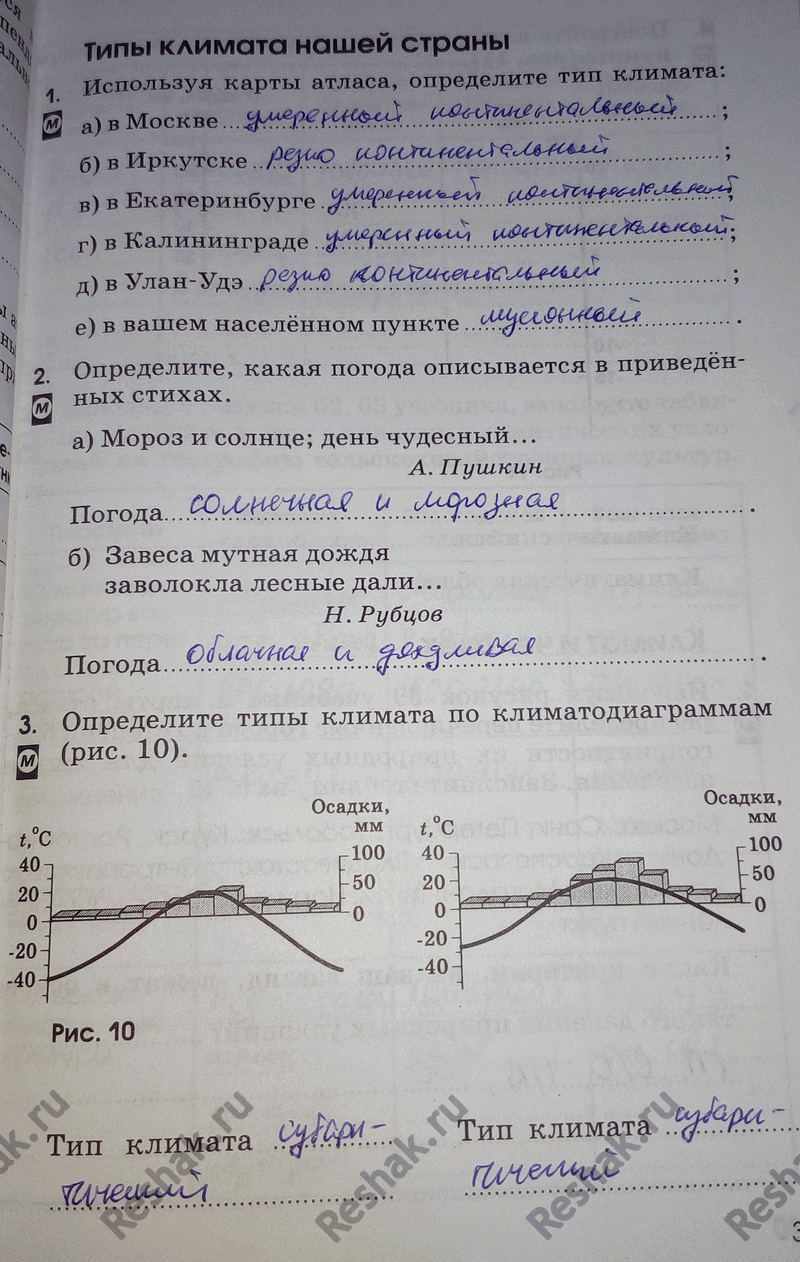 Типы климата нашей страны
1. Используя карты атласа, определите тип климата:
М а) в Москве умеренный континентальный ;
б) в Иркутске резко континентальный ;
в) в Екатеринбурге умеренный континентальный ;
г) в Калининграде умеренный континентальный ;
д) в Улан-Удэ резко континентальный ;
е) в вашем населённом пункте муссонный .
2. Определите, какая погода описывается в приведён-
М ных стихах.
а) Мороз и солнце; день чудесный...
А. Пушкин
Погода солнечная и морозная .
б) Завеса мутная дождя
заволокла лесные дали...
Н. Рубцов
Погода облачная и дождливая .
3. Определите типы климата по климатодиаграммам
М (рис. 10).
t,°C Осадки, мм
40 20 0 -20 -40
100 50 0
t,°C Осадки, мм
40 20 0 -20 -40
100 50 0
Рис. 10
Тип климата субарк-
тический
Тип климата субарк-
тический
Reshak.ru Reshak.ru Reshak.ru Reshak.ru Reshak.ru